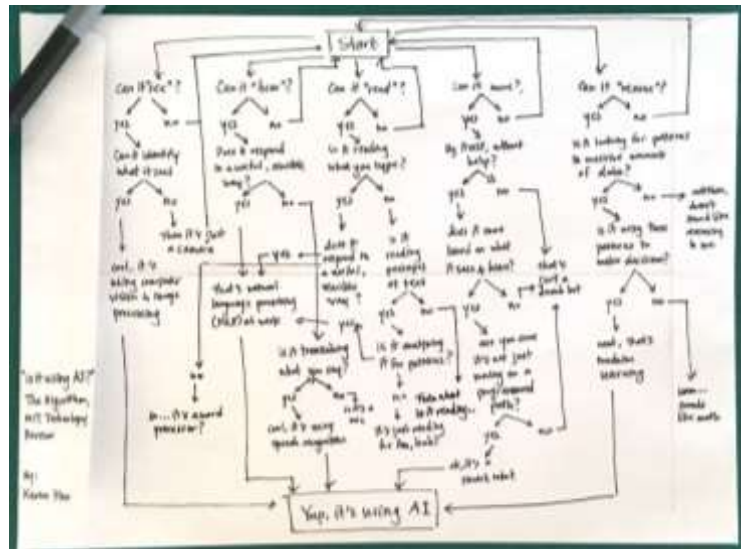 Start
Can it "see"?
yes no
Can it identify
what it sees
yes no
Then it's just
a camera
cool, it's
using computer
vision & image
processing
Can it "hear"?
yes no
Does it respond
in a useful, sensible
way?
yes no
That's natural
language processing
(NLP) at work
is it transcribing
what you say?
yes no
cool, it's using
speech recognition
Can it "read"?
yes no
is it reading
what you type?
yes no
does it
respond in
a useful,
sensible
way?
yes
no
so... it's a word
processor?
is it
reading
passages
of text
yes no
is it analyzing
it for patterns?
no
Then what
is it reading...
Can it move?
yes no
By itself, without
help?
yes no
does it move
based on what
it sees & hears?
yes no
that's
just a
are you sure
it's not just
moving on a
path?
yes no
ok, it's a
robot
Can it "reason"?
yes no
is it looking for patterns
in massive amounts
of data?
yes no
doesn't
sound like
reasoning
to me
is it using those
patterns to
make decisions?
yes no
neat, that's
machine
learning
sounds
like math
Yup, it's using AI
"is it using AI?"
The Algorithm,
MIT Technology
Review
by:
Karen Hao